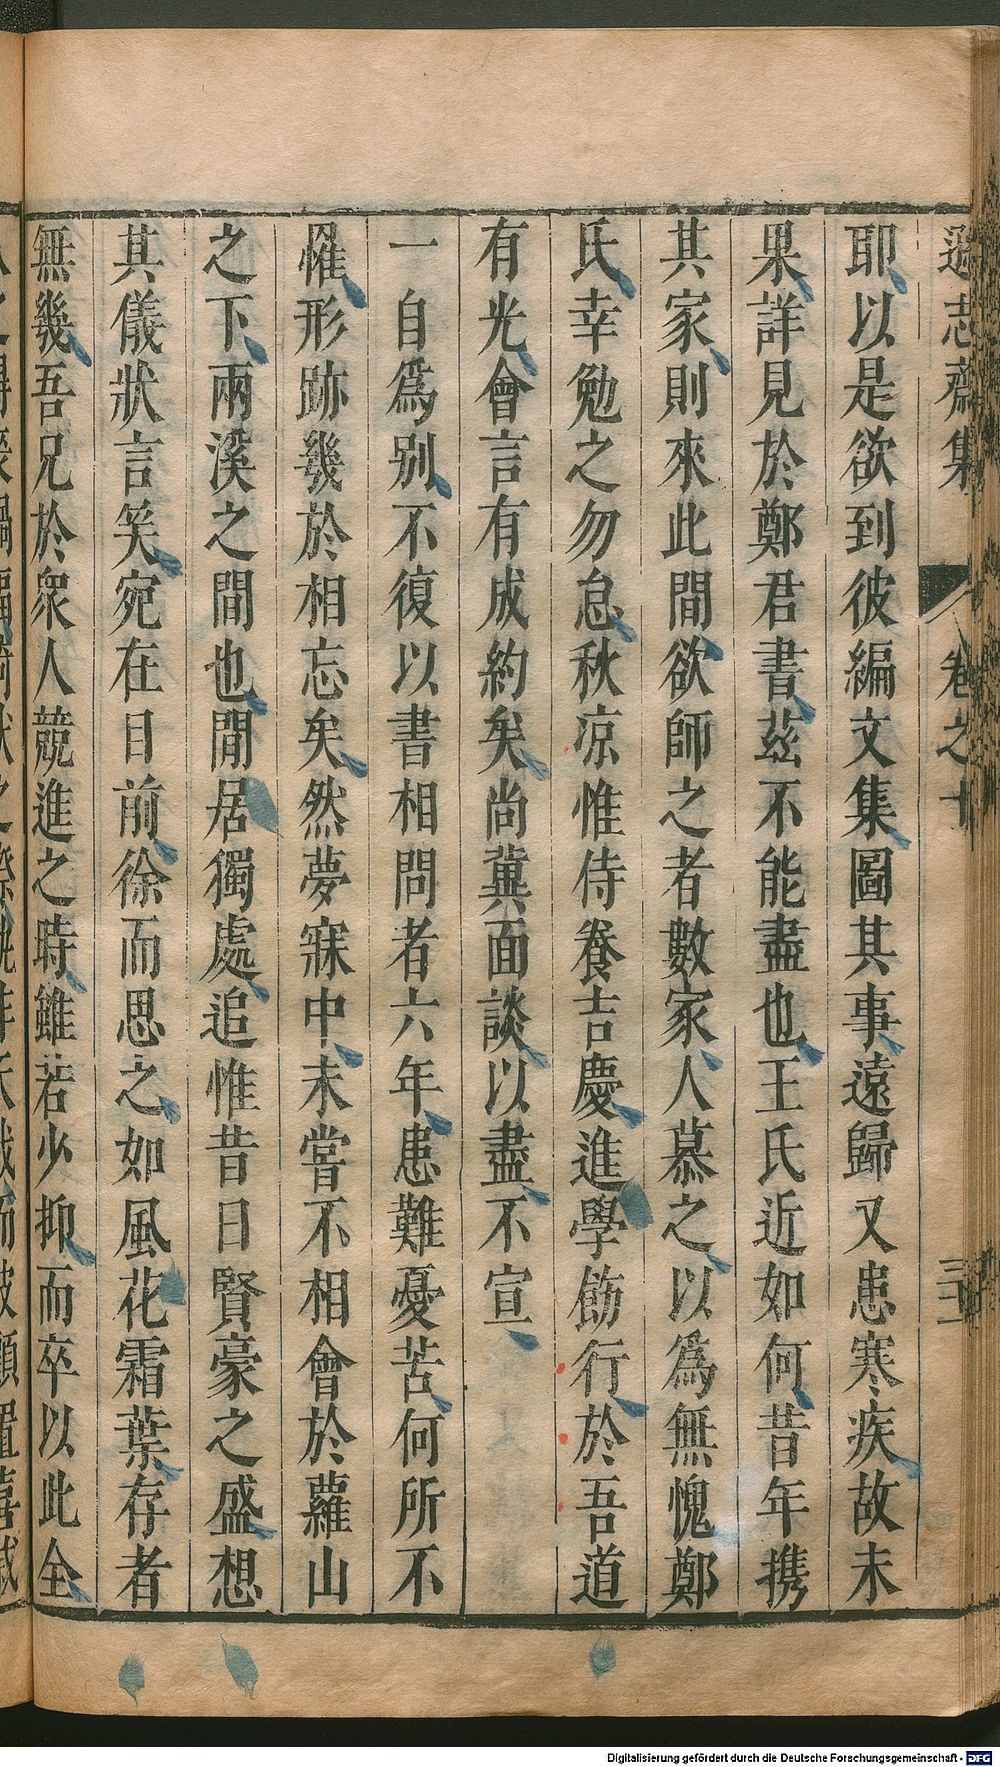 遜志齋集 卷之十
耶以是欲到彼編文集圖其事遠歸又患寒疾故未
果詳見於鄭君書茲不能盡也王氏近如何昔年携
其家則來此間欲師之者數家人慕之以爲無愧鄭
氏幸勉之勿怠秋凉惟侍養吉慶進學飭行於吾道
有光會言有成約矣尚冀面談以盡不宣
一自爲别不復以書相問者六年患難憂苦何所不
罹形跡幾於相忘矣然夢寐中未嘗不相會於蘿山
之下兩溪之間也閒居獨處追惟昔日賢豪之盛想
其儀狀言笑宛在目前徐而思之如風花霜葉存者
無幾吾兄於衆人競進之時雖若少抑而卒以此全
Digitalisierung gefördert durch die Deutsche Forschungsgemeinschaft - DFG